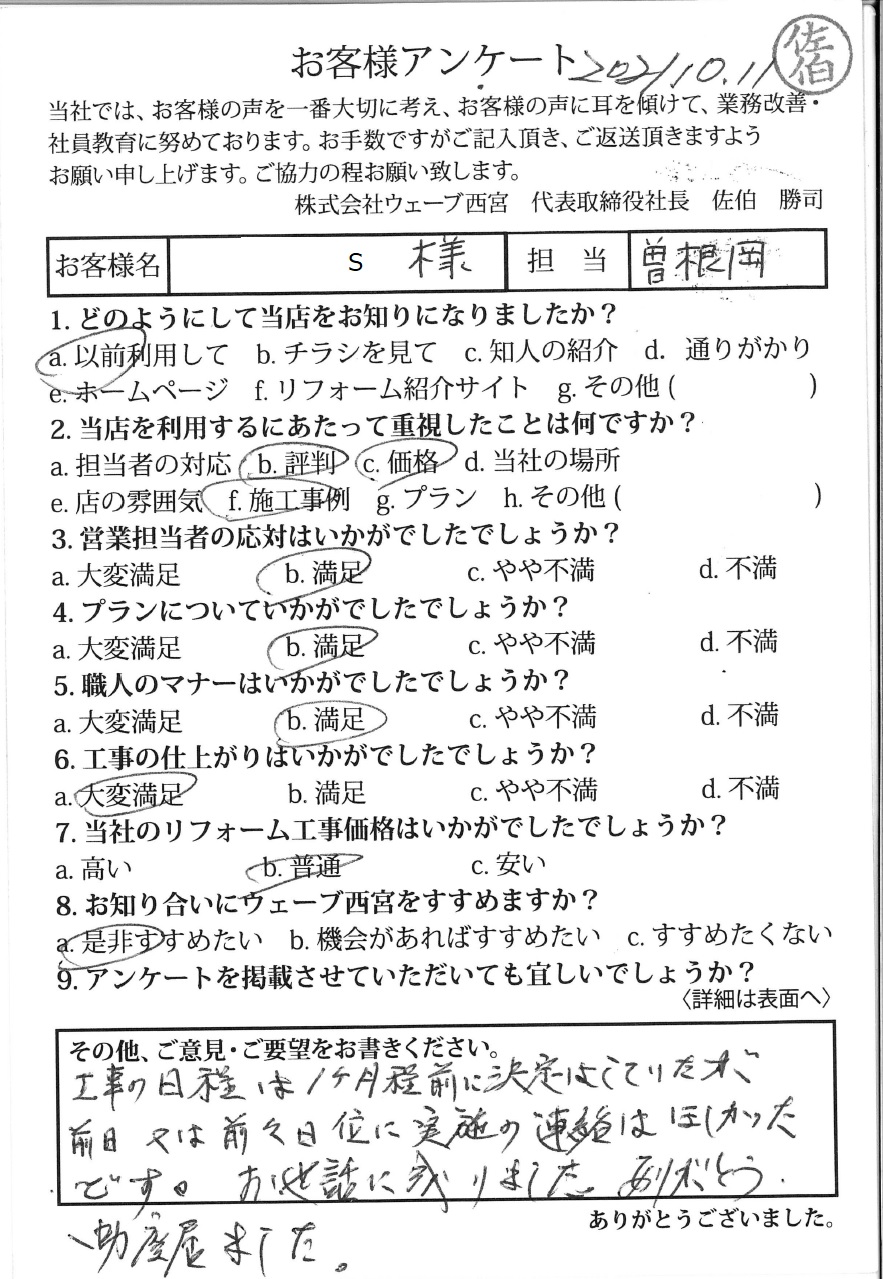 お客様アンケート 2021.10.11 佐伯
当社では、お客様の声を一番大切に考え、お客様の声に耳を傾けて、業務改善・
社員教育に努めております。お手数ですがご記入頂き、ご返送頂きますよう
お願い申し上げます。ご協力の程お願い致します。
株式会社ウェーブ西宮 代表取締役社長 佐伯 勝司
お客様名 S 様 担 当 曽根岡
1. どのようにして当店をお知りになりましたか？
a. 以前利用して b. チラシを見て c. 知人の紹介 d. 通りがかり
e. ホームページ f. リフォーム紹介サイト g. その他 ( )
2. 当店を利用するにあたって重視したことは何ですか？
a. 担当者の対応 b. 評判 c. 価格 d. 当社の場所
e. 店の雰囲気 f. 施工事例 g. プラン h. その他 ( )
3. 営業担当者の応対はいかがでしたでしょうか？
a. 大変満足 b. 満足 c. やや不満 d. 不満
4. プランについていかがでしたでしょうか？
a. 大変満足 b. 満足 c. やや不満 d. 不満
5. 職人のマナーはいかがでしたでしょうか？
a. 大変満足 b. 満足 c. やや不満 d. 不満
6. 工事の仕上がりはいかがでしたでしょうか？
a. 大変満足 b. 満足 c. やや不満 d. 不満
7. 当社のリフォーム工事価格はいかがでしたでしょうか？
a. 高い b. 普通 c. 安い
8. お知り合いにウェーブ西宮をすすめますか？
a. 是非すすめたい b. 機会があればすすめたい c. すすめたくない
9. アンケートを掲載させていただいても宜しいでしょうか？
〈詳細は表面へ〉
その他、ご意見・ご要望をお書きください。
工事の日程は1ケ月程前に決定はしていたが、
前日又は前々日位に実施の連絡はほしかった
です。お世話に成りました ありがとう
ありがとうございました。
助度屈ました。